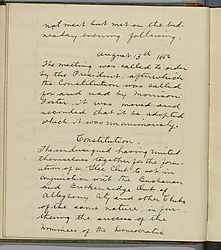 not meet but met on the Wed-
nesday evening following.
August 13th 1856
The meeting was called to order
by the President, after which
the Constitution was called
for and read by
Foster. it was moved and
seconded that it be adopted
which it was unanimously.
Constitution.
The undersigned having united
themselves together for the form-
ation of a "Club" to act in
conjunction with the Buchanan
and Breckenridge Club of
Allegheny City and other Clubs
of the same nature in fur-
thering the success of the
nominees of the Democratic